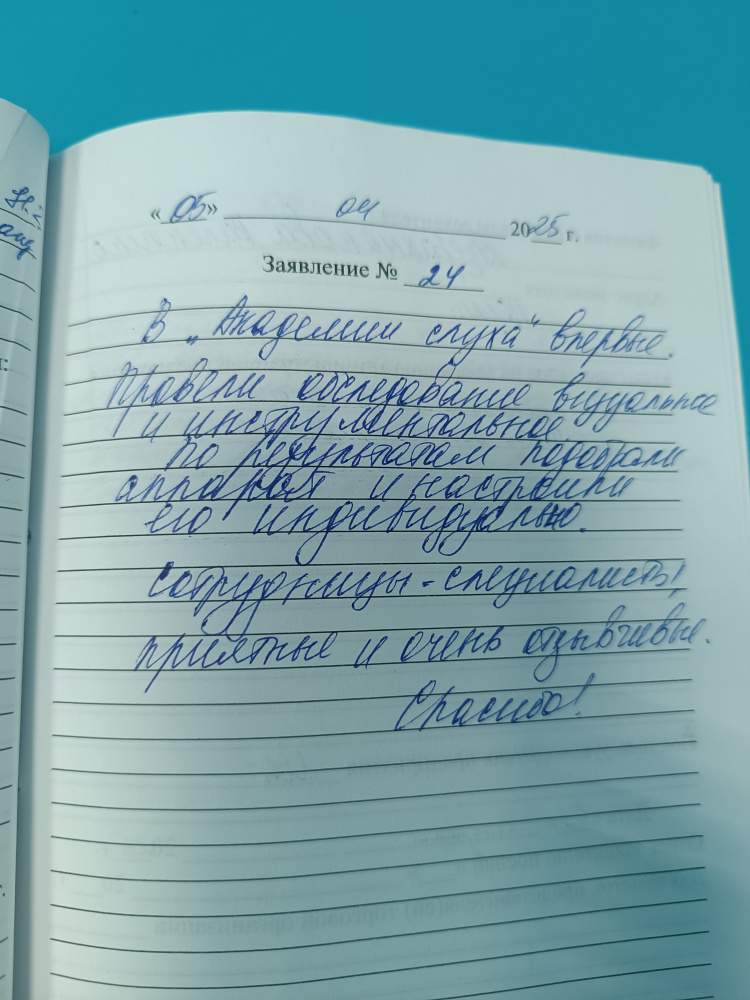 « 05 » 04 2025 г.
Заявление № 24
В „Академии слуха“ впервые.
Провели обследование визуальное
и инструментальное.
По результатам подобрали
аппарат и настроили
его индивидуально.
Сотрудницы - специалисты,
приятные и очень отзывчивые.
Спасибо!